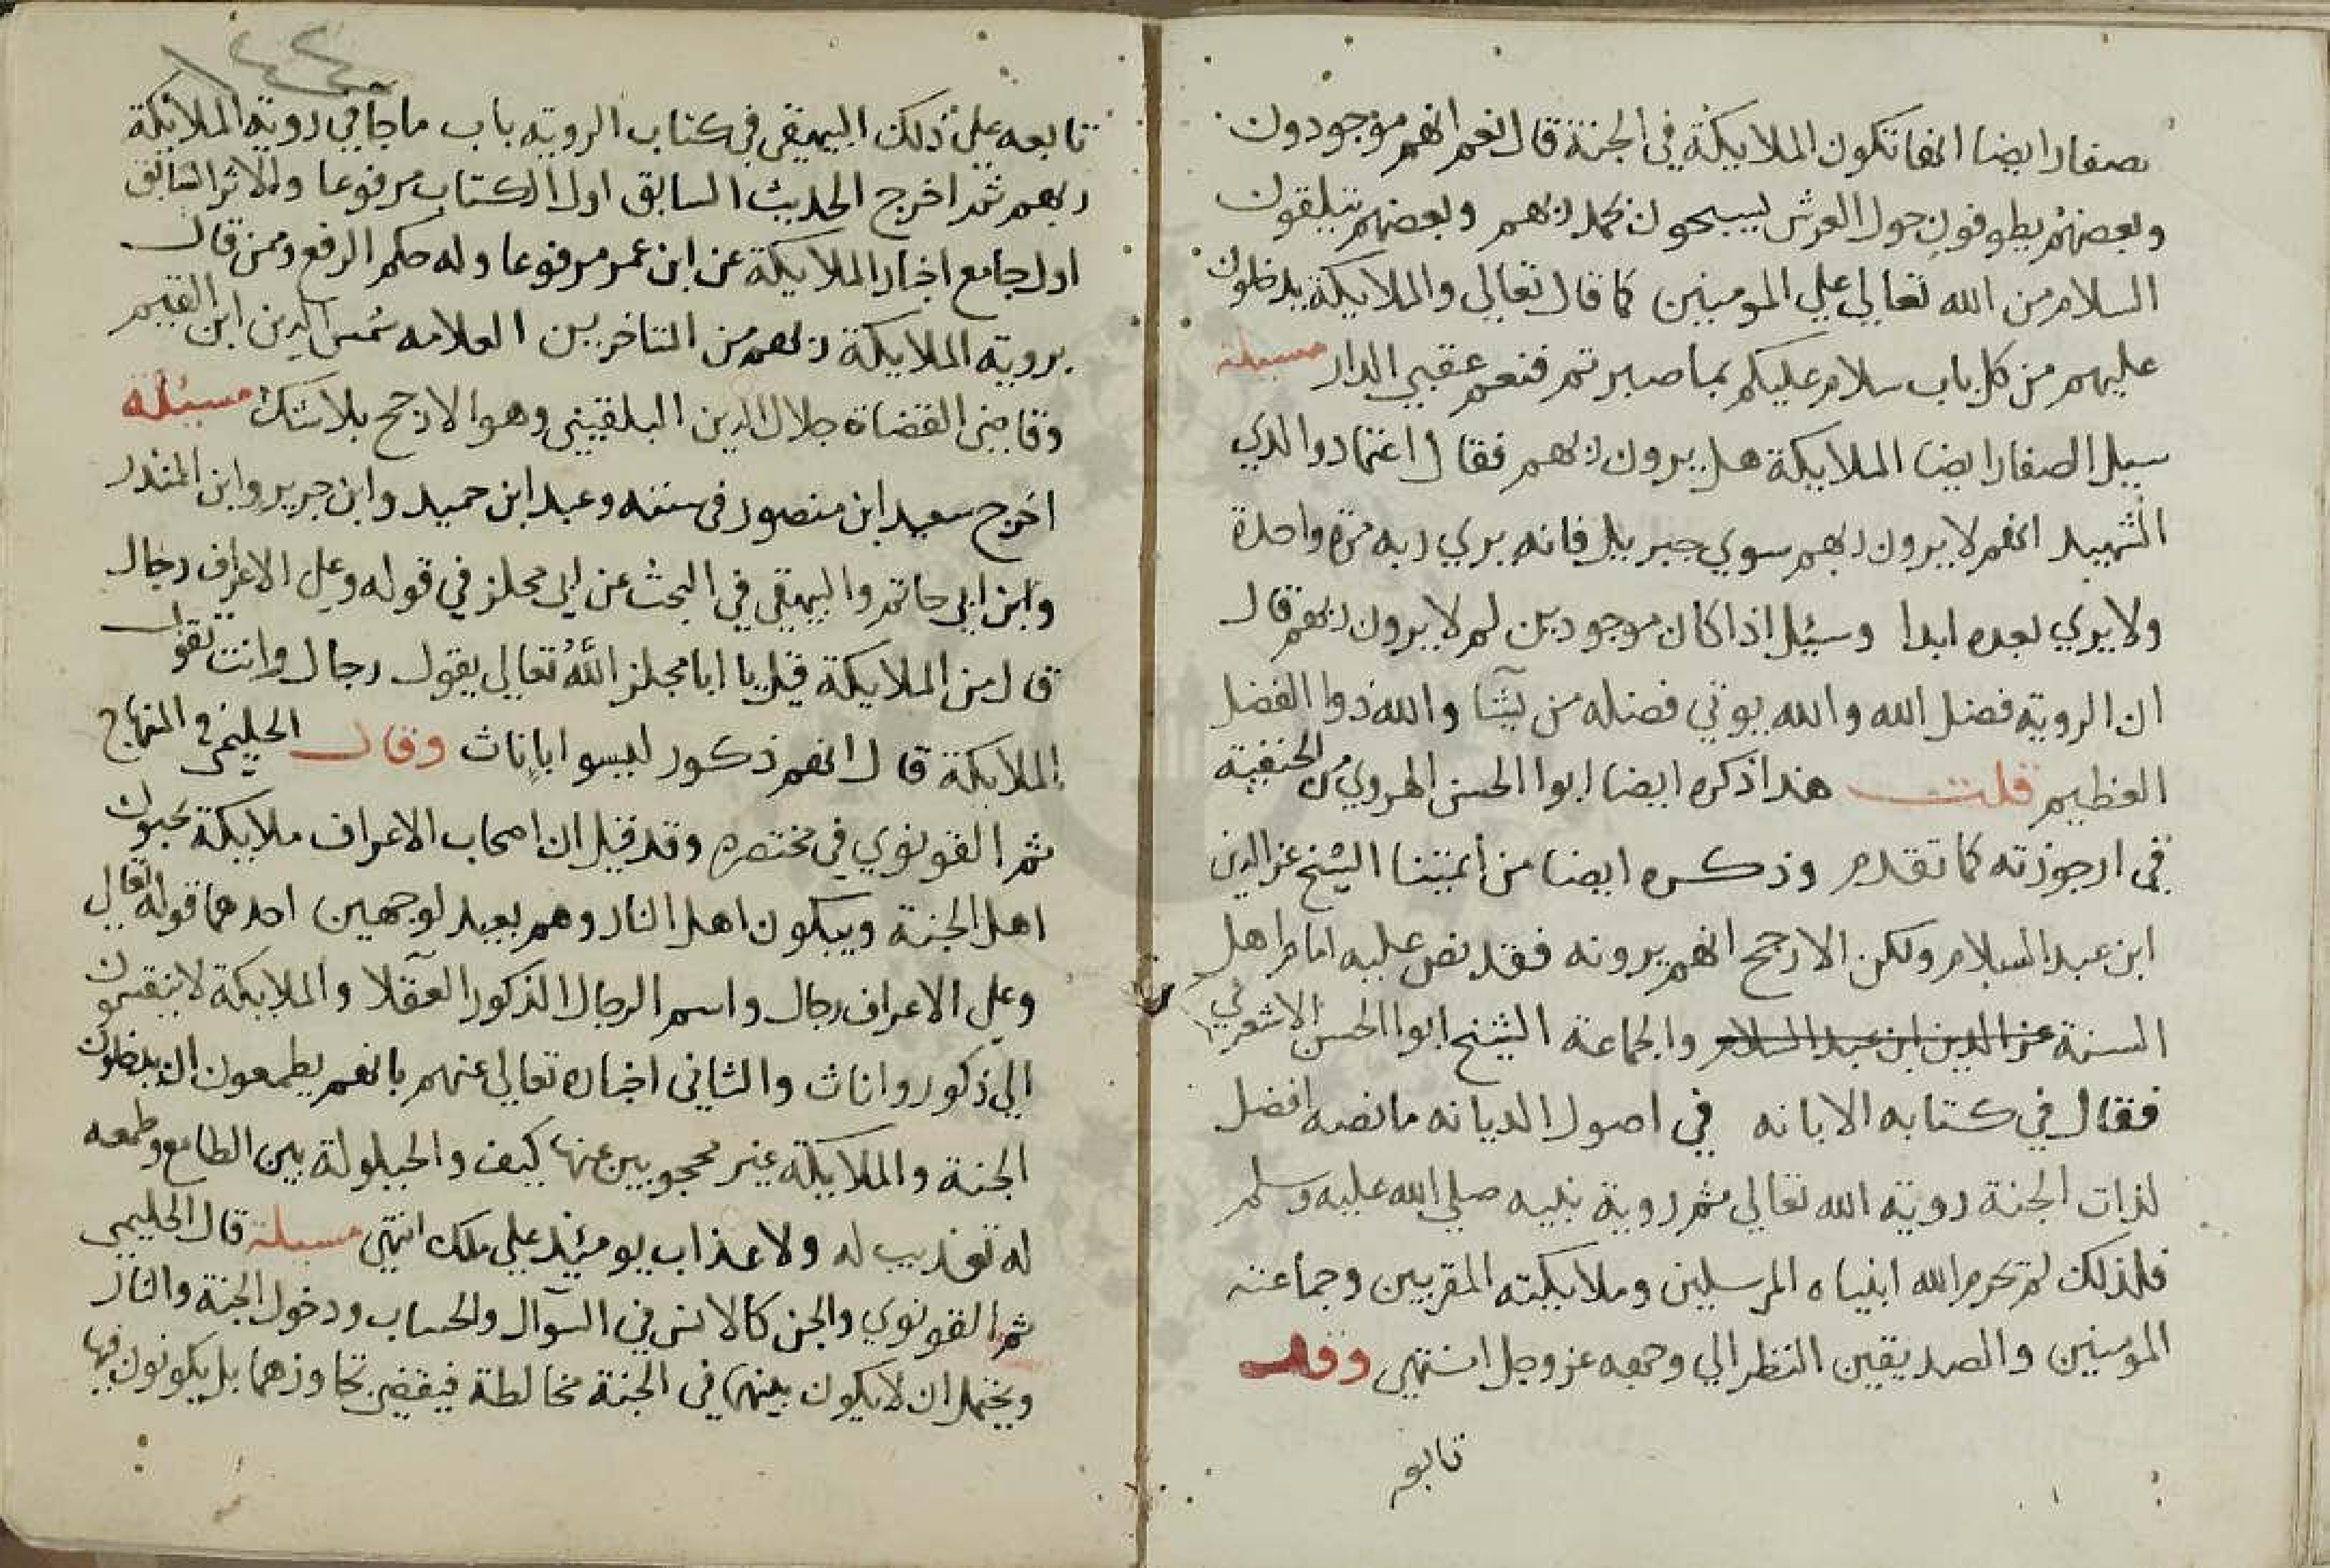 صفار ايضا انفا تكون الملايكة في الجنة قال نعم انهم موجودون
وبعضهم يطوفون حول العرش يسبحون بحمد ربهم وبعضهم يبلغون
السلام من الله تعالي علي المومنين كما قال تعالي والملايكة يدخلون
عليهم من كل باب سلام عليكم بما صبرتم فنعم عقبي الدار مسيلة
سيل الصفار ايضا الملايكة هل يرون ربهم فقال اعتماد والدي
الشهيد انهم لا يرون ربهم سوي جبريل فانه يري ربه مرة واحدة
ولا يري بعده ابدا وسئيل اذا كان موجودين لم لا يرون ربهم قال
ان الروية فضل الله والله يوتي فضله من يشآ والله ذوا الفضل
العظيم قلت هذا ذكره ايضا ابوا الحسن الهروي من الحنفية
في ارجوزته كما تقدم وذكره ايضا من أئمتنا الشيخ عز الدين
ابن عبد السلام ولكن الارجح انهم يرونه فقد نص عليه امام اهل
السنة عز الدين ابن عبد السلام والجماعة الشيخ ابوا الحسن الاشعري
فقال في كتابه الابانه في اصول الديانه ما نصه افضل
لذات الجنة روية الله تعالي ثم روية نبيه صلي الله عليه وسلم
فلذلك لم يحرم الله انبياه المرسلين وملايكته المقربين وجماعته
المومنين والصديقين النظر الي وجهه عز وجل انتهي وقد
تابعه
تابعه علي ذلك البيهقي في كتاب الروية باب ما جآ في روية الملائكة
ربهم ثم اخرج الحديث السابق اول الكتاب مرفوعا والاثر السابق
اول جامع اخبار الملايكة عن ابن عمر مرفوعا وله حكم الرفع وممن قال
بروية الملايكة ربهم من المتاخرين العلامه شمس الدين ابن القيم
وقاضي القضاة جلال الدين البلقيني وهو الارجح بلا شك مسئلة
اخرج سعيد ابن منصور في سننه وعبد ابن حميد وابن جرير وابن المنذر
وابن ابي حاتم والبيهقي في البحث عن ابي مجلز في قوله وعلي الاعراف رجال
قال من الملايكة قيل يا ابا مجلز الله تعالي يقول رجال وانت تقول
الملايكة قال انهم ذكور ليسوا باناث وقال الحليمي في المنهاج
ثم القونوي في مختصره وقد قيل ان اصحاب الاعراف ملايكة يحبون
اهل الجنة ويبكون اهل النار وهو بعيد لوجهين احدهما قوله تعالي
وعلي الاعراف رجال واسم الرجال الذكور العقلا والملايكة لا ينقسمون
الي ذكور واناث والثاني اخباره تعالي عنهم بانهم يطمعون ان يدخلون
الجنة والملايكة غير محجوبين عنها كيف والحيلولة بين الطامع وطمعه
له تعذيب له ولا عذاب يومئذ علي ملك انتهي مسيلة قال الحليمي
ثم القونوي والجن كالانس في السوال والحساب ودخول الجنة والنار
ويحتمل ان لا يكون بينهما في الجنة مخالطة فيقضي تجاوزهما بل يكونون فيها